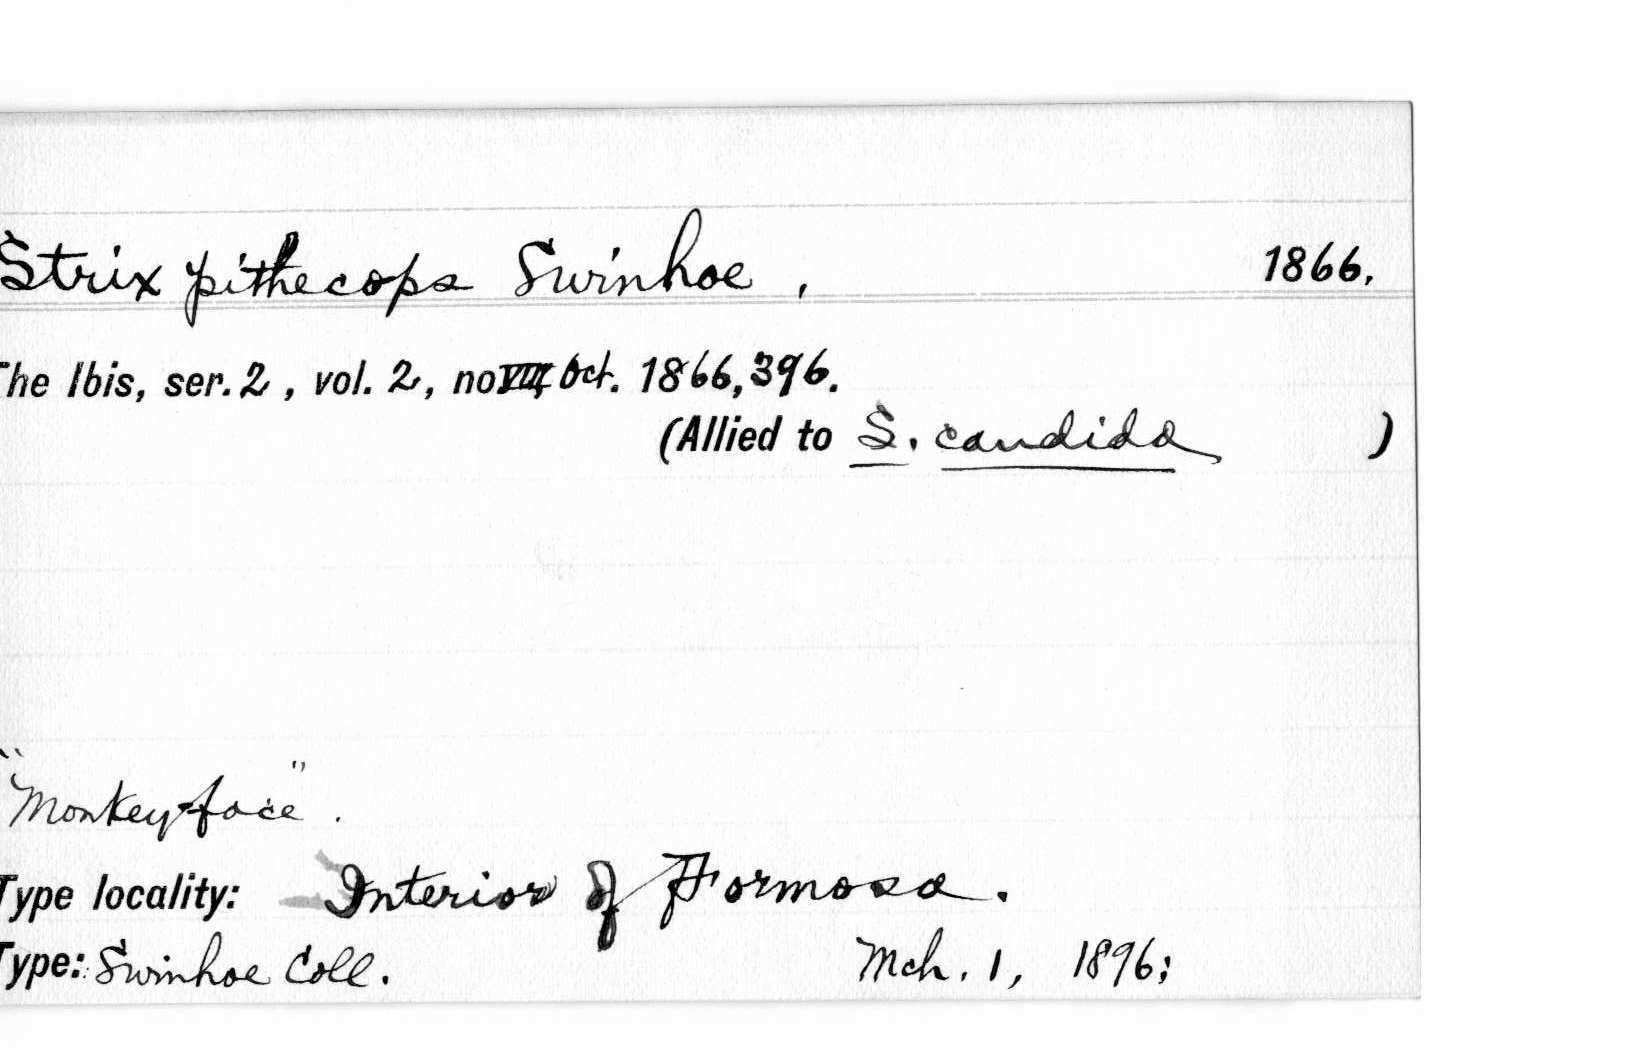 Strix pithecops Swinhoe, 1866.
The Ibis, ser. 2, vol. 2, no VIII, Oct. 1866, 396.
(Allied to S. candida )
"Monkey-face".
Type locality: Interior of Formosa.
Type: Swinhoe Coll. Mch. 1, 1896;